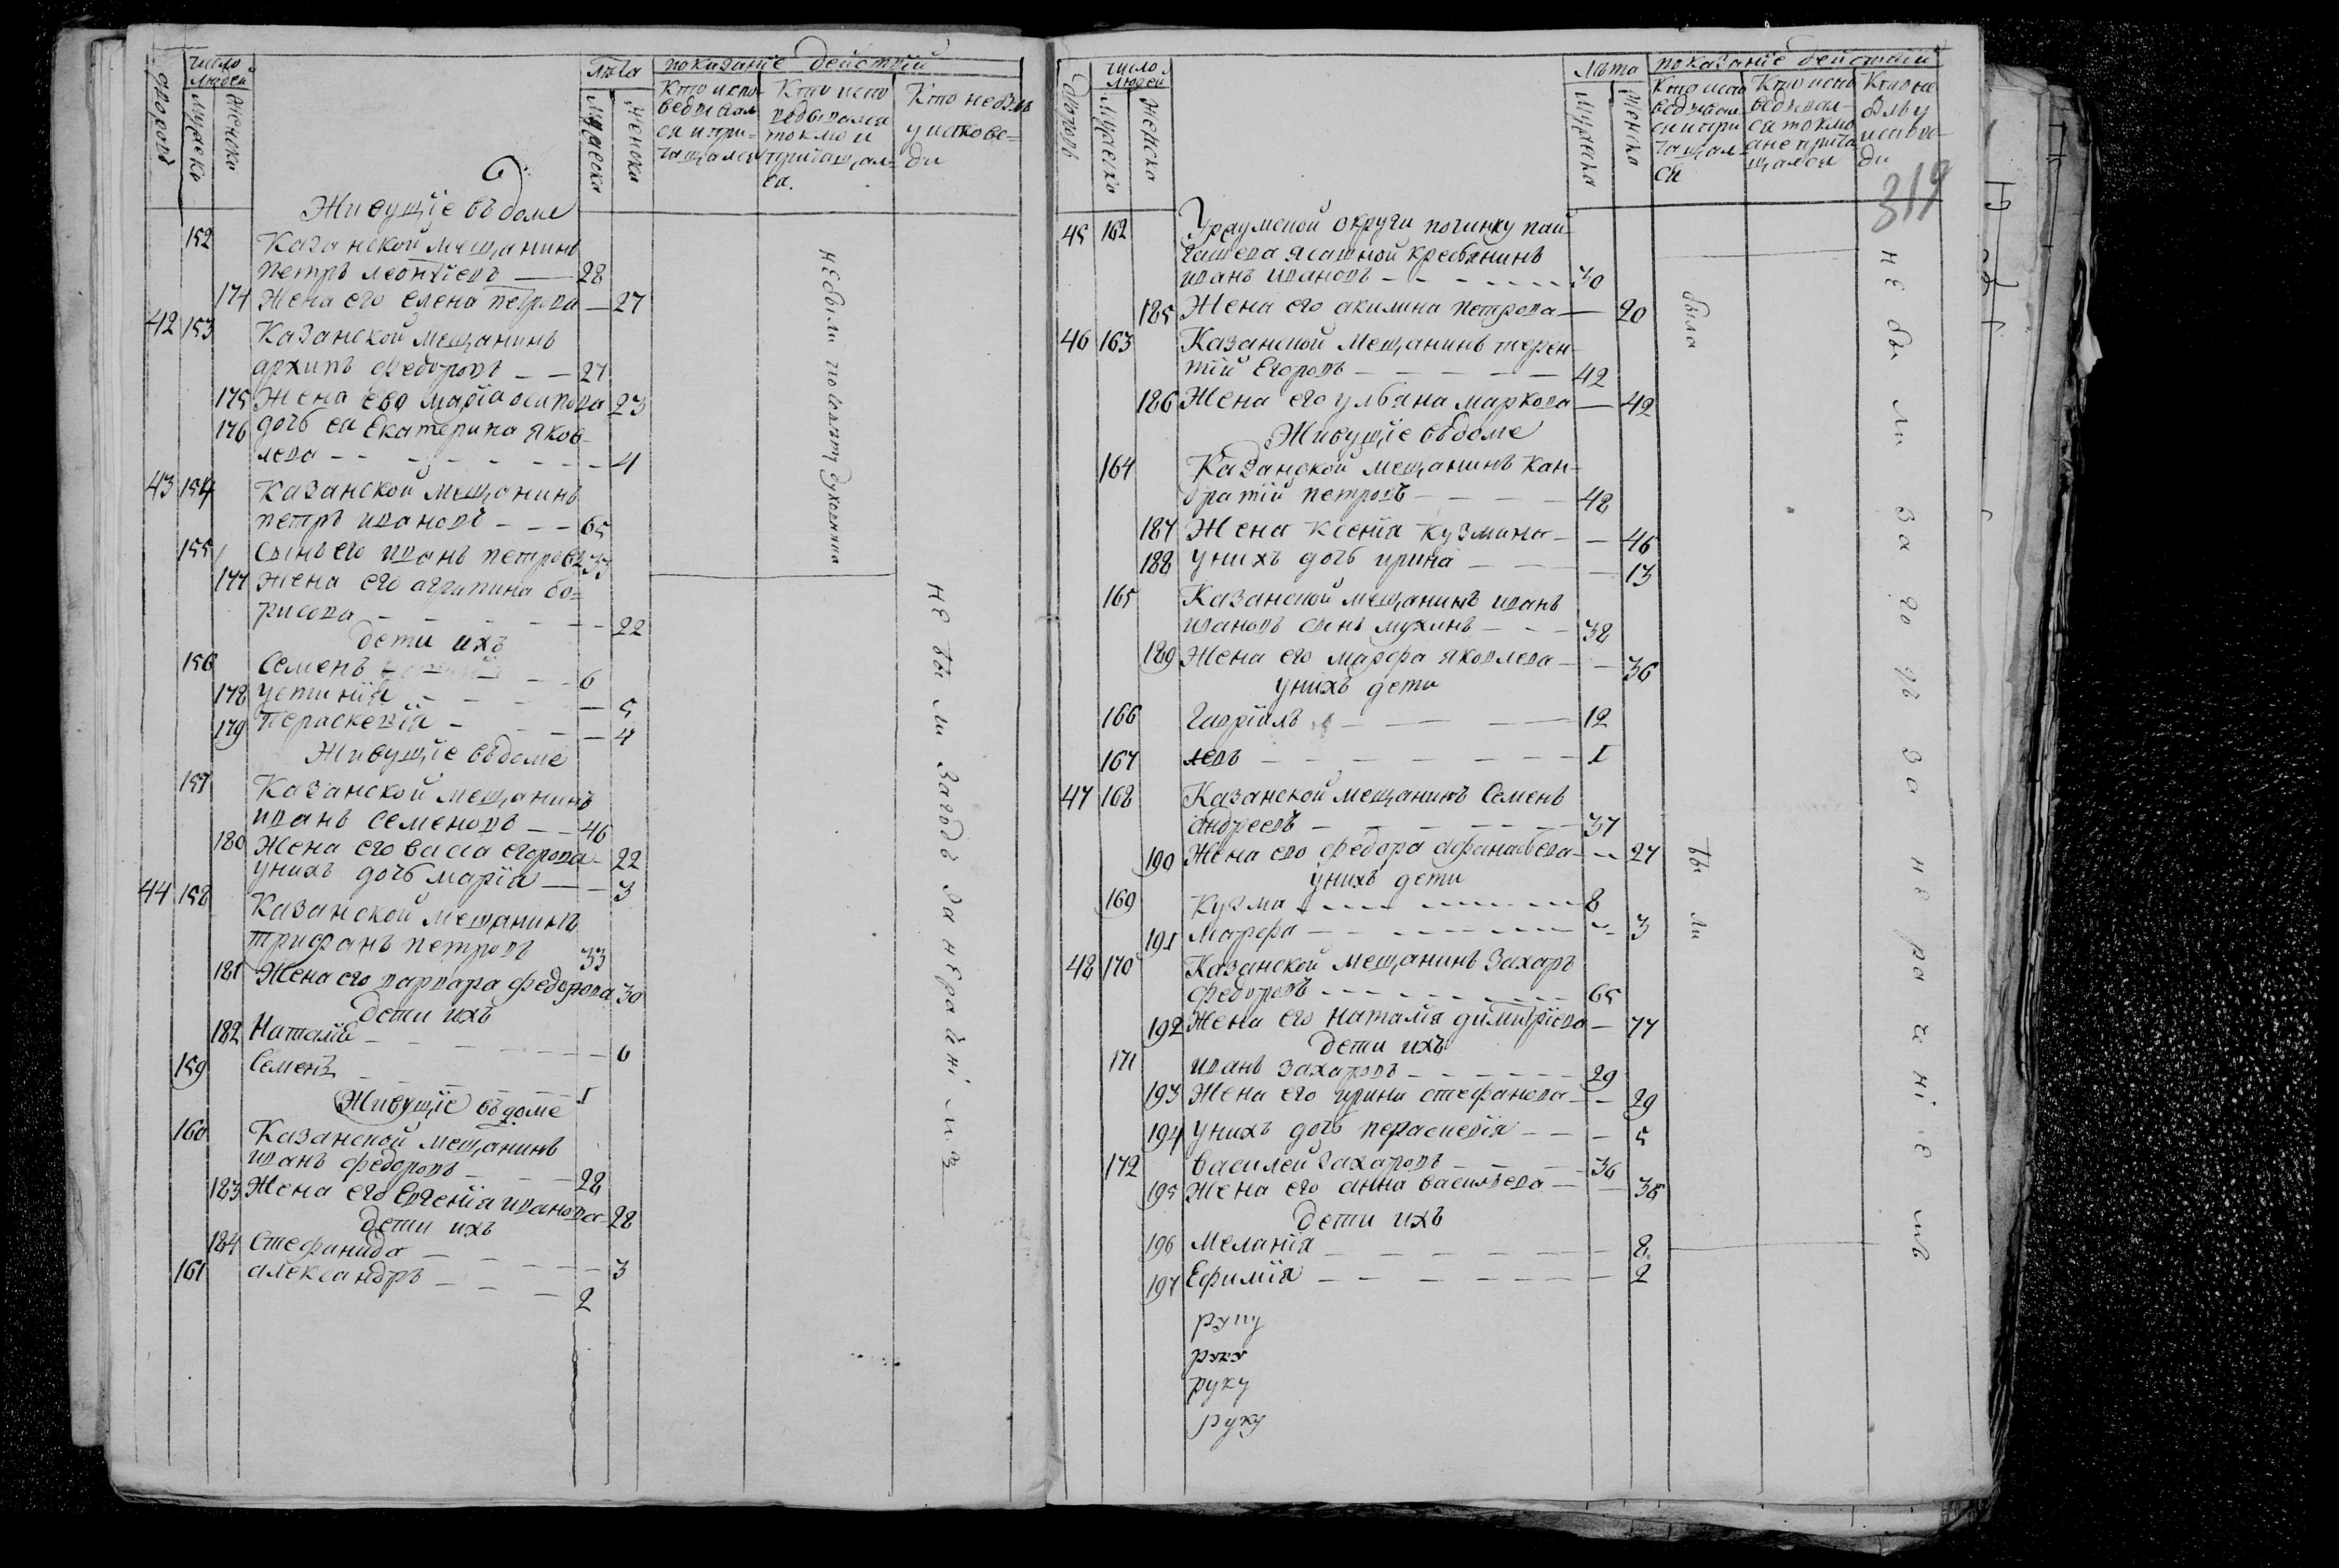 дворовъ
число людей
мужеска
женска
лѣта
мужеска
женска
показание действий
Кто испо-
ведывал
ся и при-
чащался
Кто испо
ведывался
токмо и
причащал-
ся.
Кто не былъ
у испове-
ди
Живущие въ доме
152 Казанской мещанинъ
петръ леонтиевъ — 28
174 Жена его елена петрова — 27
42 153 Казанской мещанинъ
архипъ федоровъ — — 27
175 Жена ево мария осипова 23
176 дочь ея Екатерина яков-
лева — 4
43 154 Казанской мещанинъ
петръ ивановъ — — — 65
155 сынъ его иванъ петровъ 33
177 жена его агрипина бо-
рисова — — 22
дети ихъ
156 Семенъ — 6
178 устиния — 5
179 Пераскевия — — 4
Живущие въ доме
157 Казанской мещанинъ
иванъ семеновъ — — 46
180 Жена его васса егорова — 22
у нихъ дочь мария — — 3
44 158 Казанской мещанинъ
трифанъ петровъ 33
181 Жена его варвара федорова 30
дети ихъ
182 Наталие — 6
159 Семенъ — 1
Живущие въ доме
160 Казанской мещанинъ
иванъ федоровъ — 28
183 Жена его Евгения иванова — 28
дети ихъ
184 Стефанида — 3
161 александръ — 2
не были
не были за годъ за нераченi
дворовъ
число людей
мужеска
женска
лѣта
мужеска
женска
показание действий
Кто испо
ведывал
ся и при
чащал-
ся
Кто испо
ведывал-
ся токмо
а не прича
щался
Кто не
былъ у
испове-
ди
319
45 162 Уржумской округи починку пай
гашева ясашной крестьянинъ
иванъ ивановъ — 30
185 Жена его акилина петрова — 20
46 163 Казанской мещанинъ терен-
тий Егоровъ — 42
186 Жена его ульяна маркова — 42
Живущие въ доме
164 Казанской мещанинъ кан-
дратий петровъ — 48
187 Жена ксения кузмина — — 46
188 у нихъ дочь ирина — 13
165 Казанской мещанинъ иванъ
ивановъ сынъ мухинъ — — 38
189 Жена его марфа яковлева — — 36
у нихъ дети
166 Гаврiилъ — 12
167 левъ — 1
47 168 Казанской мещанинъ Семенъ
андреевъ — 37
190 Жена ево федора афанасьева — 27
у нихъ дети
169 Кузма — 8
191 марфа — 3
48 170 Казанской мещанинъ Захаръ
федоровъ — 65
192 Жена его наталия димитриева — 77
дети ихъ
171 иванъ захаровъ — 29
193 Жена его ирина стефанова — 29
194 у нихъ дочь пераскевия — 5
172 василей захаровъ — 36
195 Жена его анна васильева — 38
дети ихъ
196 Мелания — 8
197 Ефимия — 2
руку
руку
руку
руку
была
были
не были за годъ за нераченiемъ